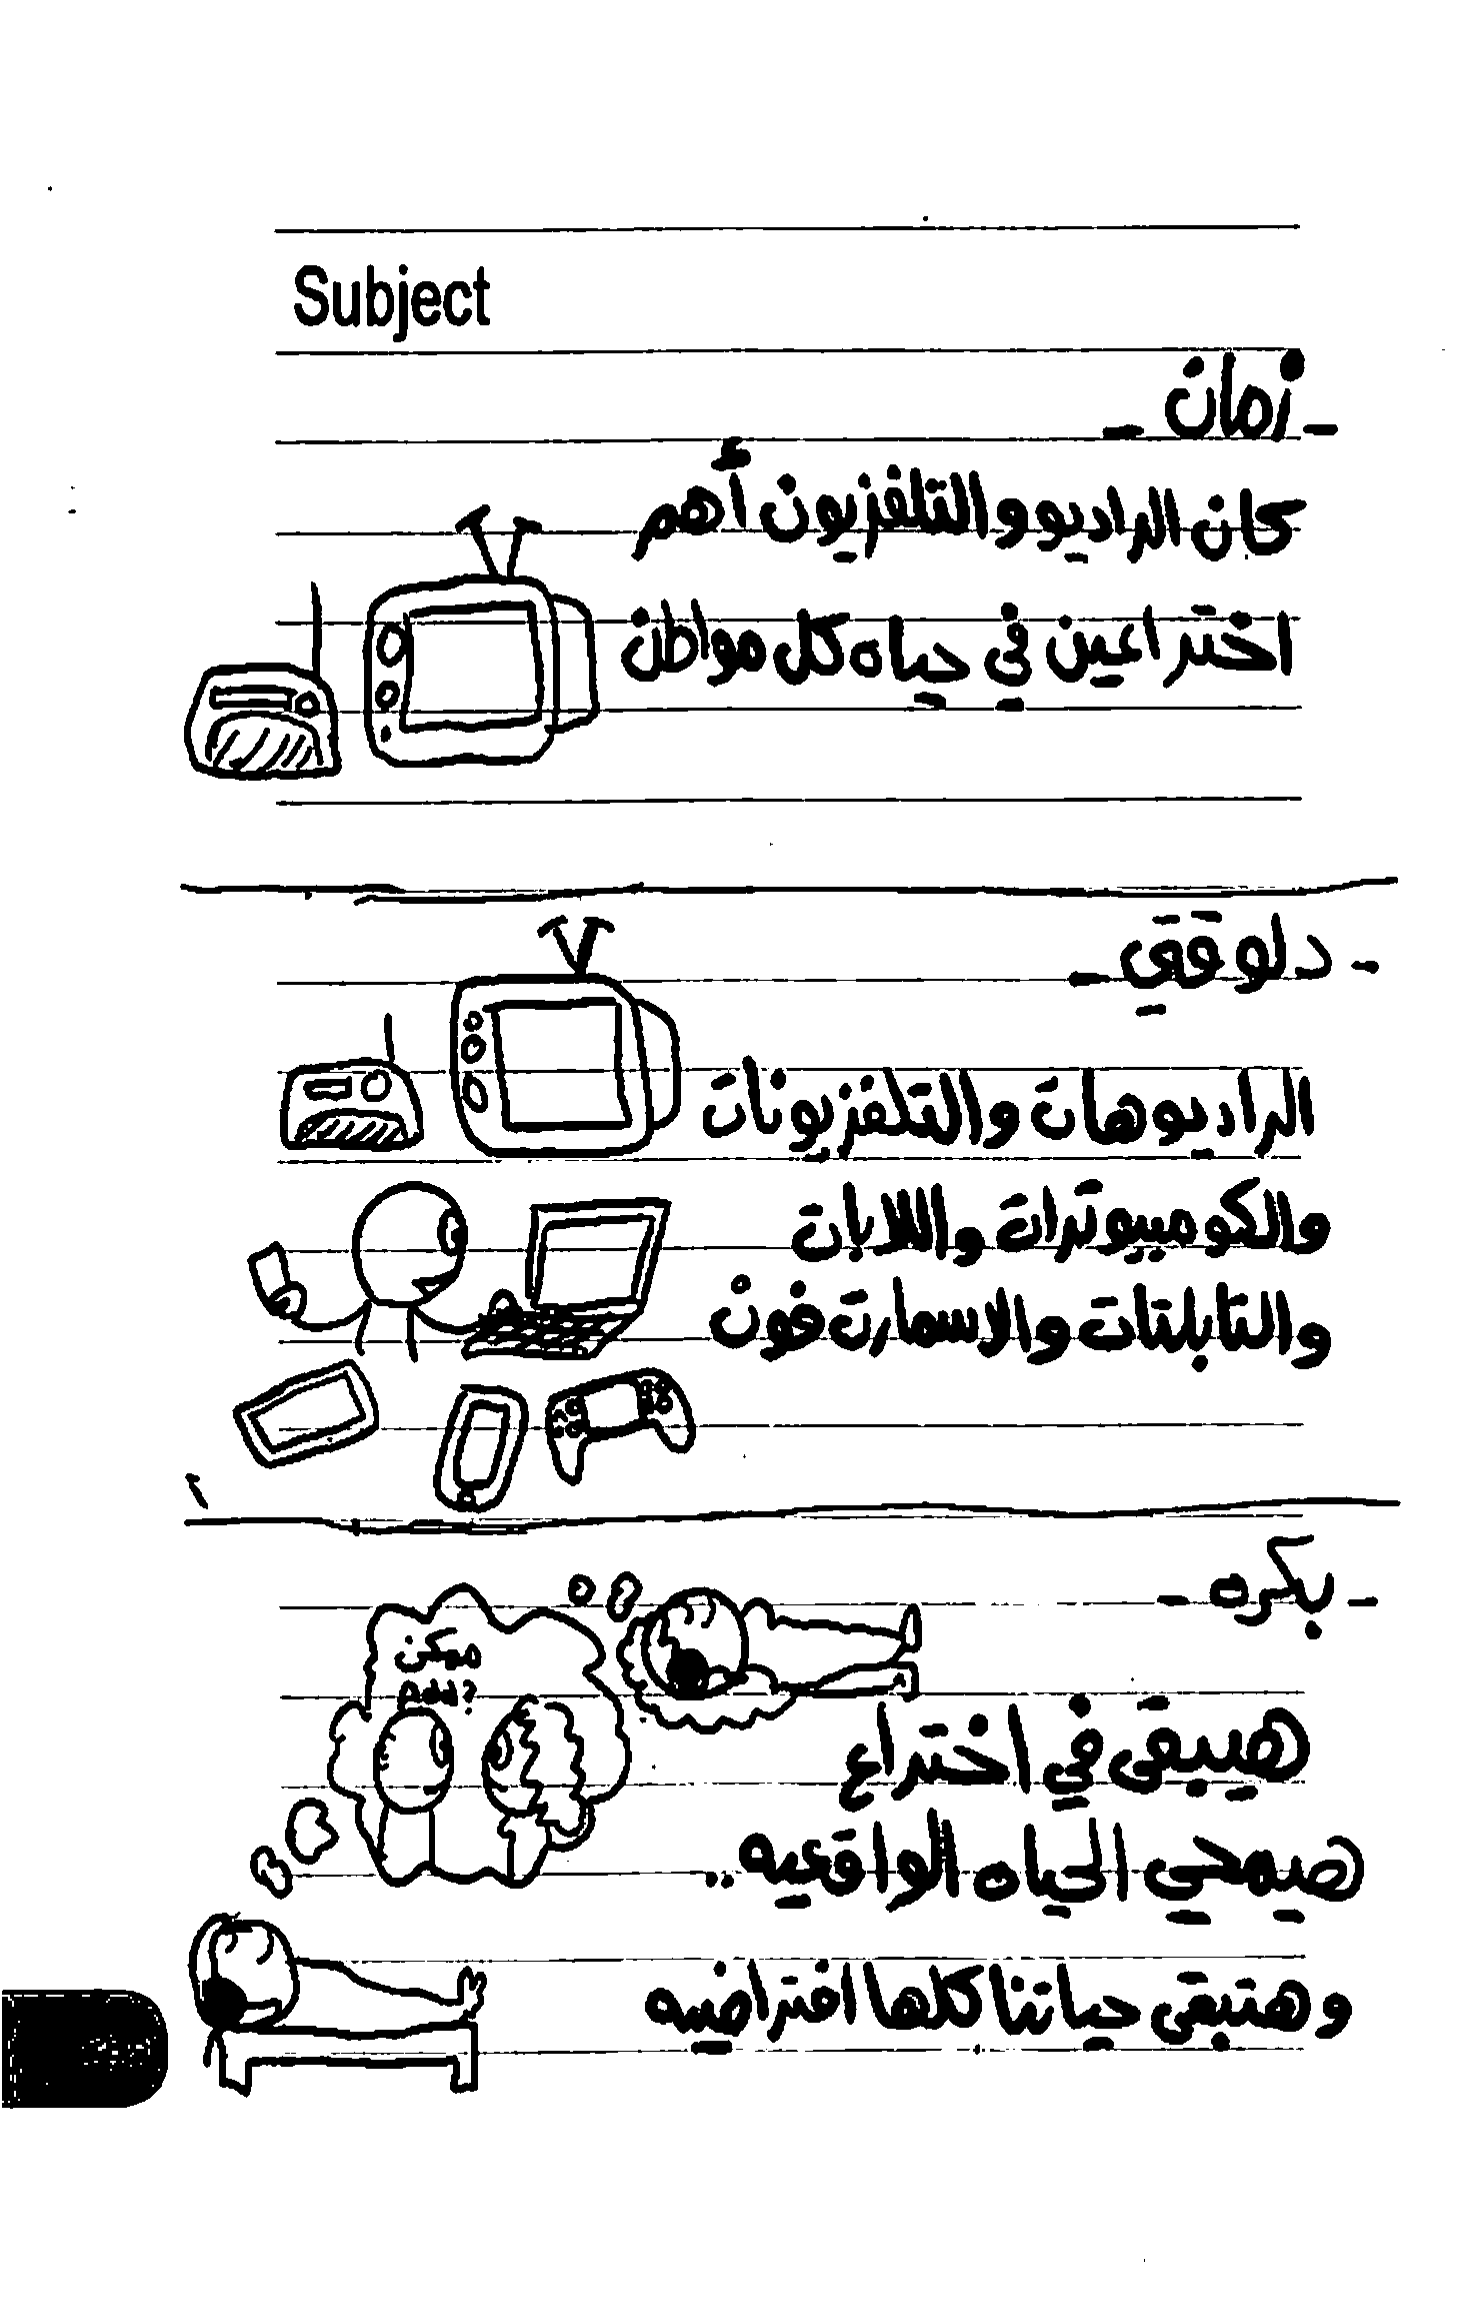 Subject
- زمان -
كان الراديو والتلفزيون أهم
اختراعين في حياه كل مواطن
- دلوقتي -
الراديوهات والتلفزيونات
والكومبيوترات واللابات
والتابلتات والاسمارت فون
- بكره -
ممكن
Add?
هيبقى في اختراع
هيمحي الحياه الواقعيه..
وهتبقى حياتنا كلها افتراضيه